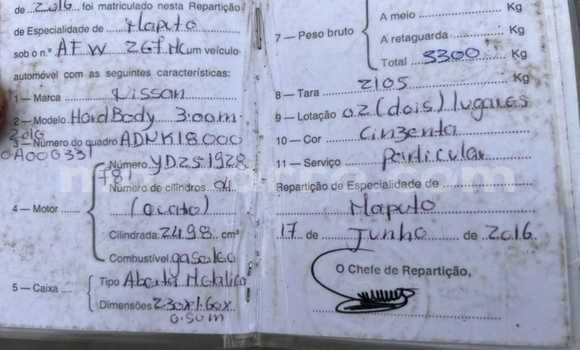 de 2016 foi matriculado nesta Repartição
de Especialidade de Maputo
sob o n.º AFW 267 MC um veículo
automóvel com as seguintes características:
1 — Marca Nissan
2 — Modelo HardBody 3.00m
2016
3 — Número do quadro ADNK18000
0A006331
4 — Motor
Número YD25-1928
78
Número de cilindros 04
(quatro)
Cilindrada 2498 cm³
Combustível gasoleo
5 — Caixa
Tipo Aberta Metalica
Dimensões 230x1.60x
0.50m
7 — Peso bruto
A meio Kg
A retaguarda Kg
Total 3300 Kg
8 — Tara 2105 Kg
9 — Lotação 02 (dois) lugares
10 — Cor Cinzenta
11 — Serviço Particular
Repartição de Especialidade de
Maputo
17 de Junho de 2016
O Chefe de Repartição,